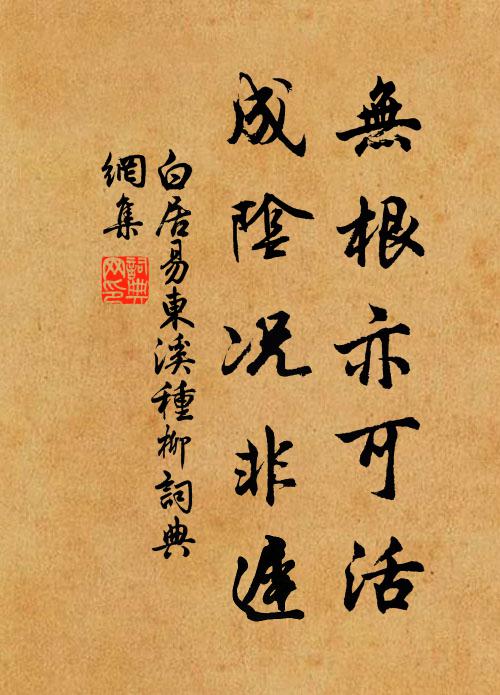 無根亦可活
成陰況非遲
白居易東溪種柳詞典
網集
詞典
網印